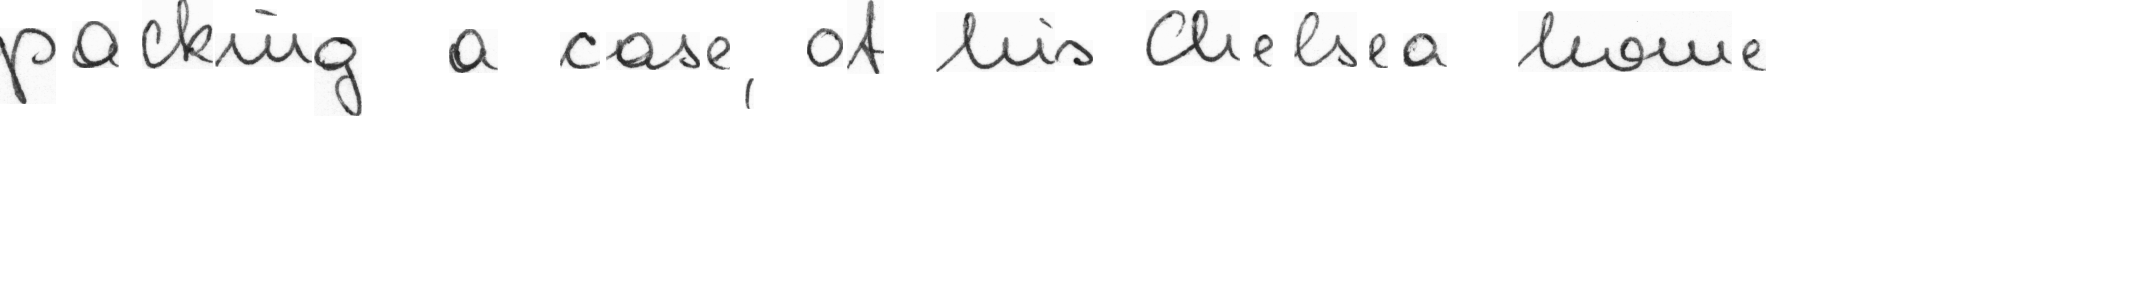 packing a case, at his Chelsea home